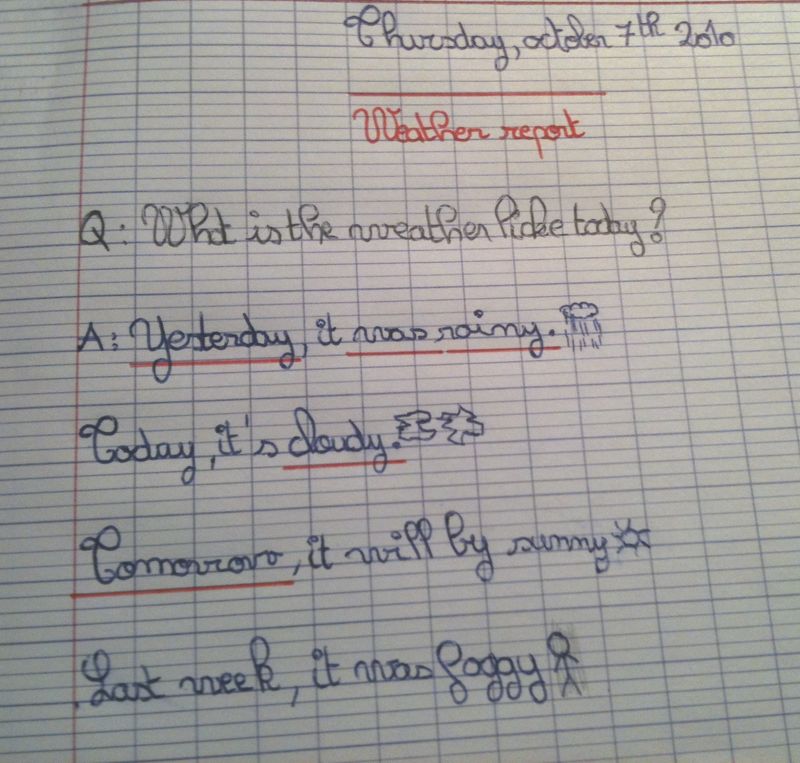 Thursday, october 7th 2010
Weather report
Q: What is the weather licke today?
A: Yesterday, it was rainy.
Today, it's cloudy.
Tomorrow, it will by sunny
Last week, it was foggy